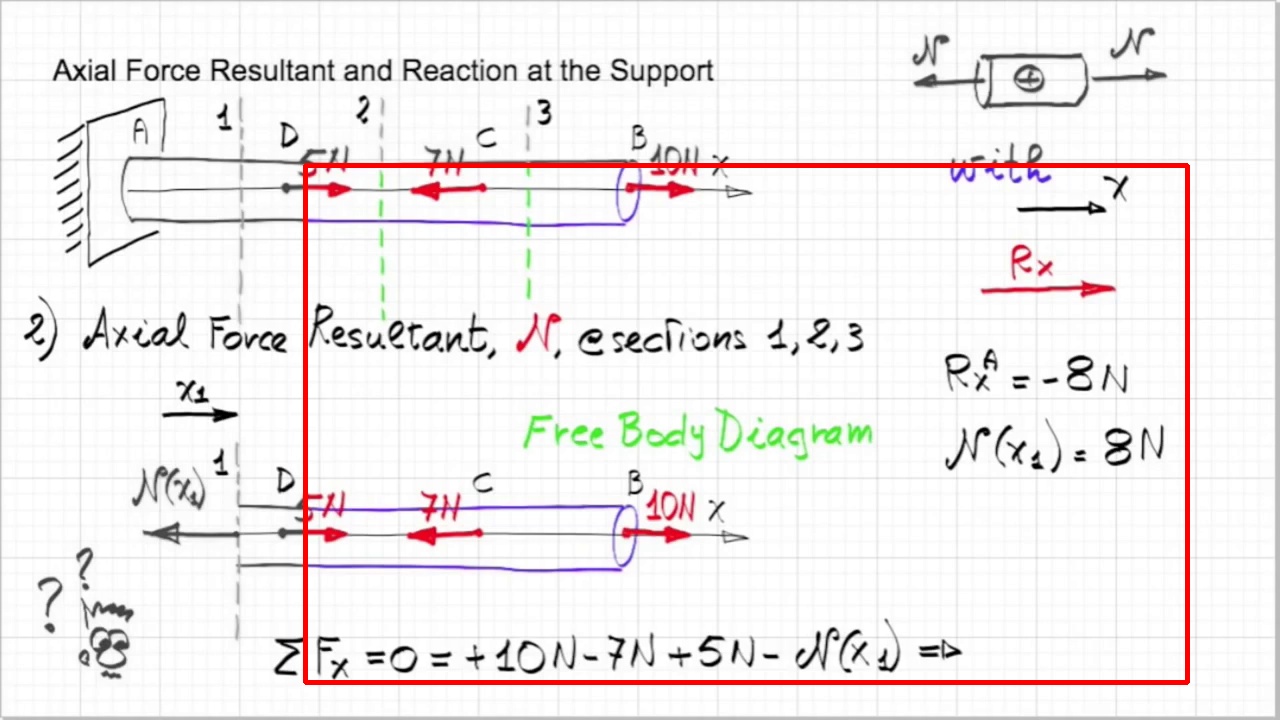 Axial Force Resultant and Reaction at the Support
N N
A 1 D 2 C 3 B
5N 7N 10N x
with
x
Rx
2) Axial Force Resultant, N, @ sections 1, 2, 3
RxA = -8N
x1
Free Body Diagram
N(x1) = 8N
N(x1) 1 D C B
5N 7N 10N x
? ?
ΣFx = 0 = +10N - 7N + 5N - N(x1) =>